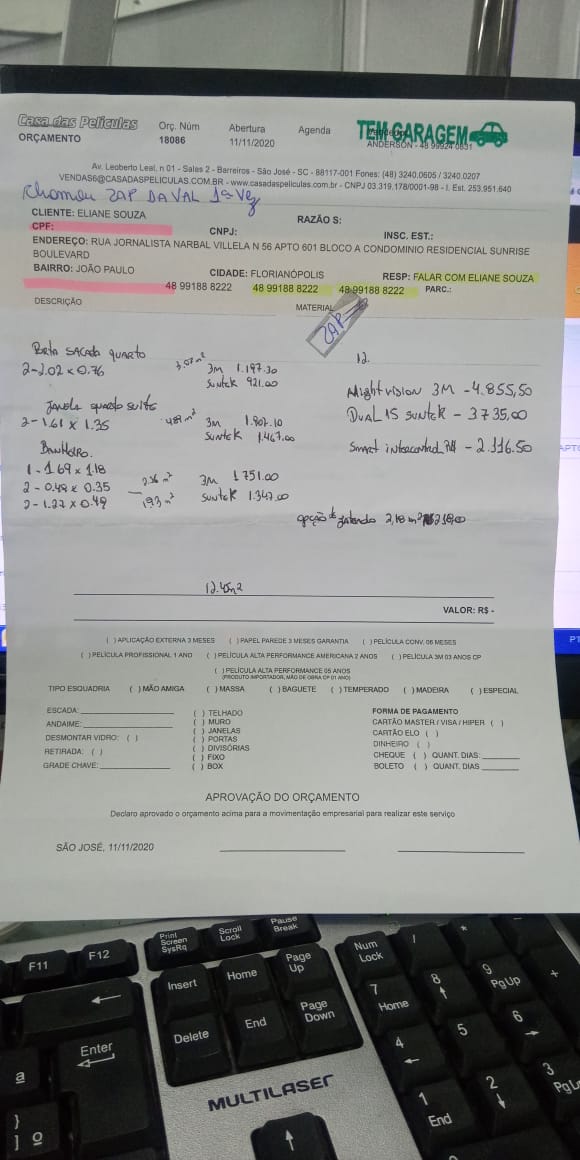 Casa das Películas
ORÇAMENTO
Orç. Núm
18086
Abertura
11/11/2020
Agenda
TEM GARAGEM
ANDERSON - 48 99924 0831
Av. Leoberto Leal, n 01 - Salas 2 - Barreiros - São José - SC - 88117-001 Fones: (48) 3240.0605 / 3240.0207
VENDAS6@CASADASPELICULAS.COM.BR - www.casadaspeliculas.com.br - CNPJ 03.319.178/0001-98 - I. Est. 253.951.640
Chamou ZAP DA VAL 1ª vez
CLIENTE: ELIANE SOUZA
RAZÃO S:
CPF:
CNPJ:
INSC. EST.:
ENDEREÇO: RUA JORNALISTA NARBAL VILLELA N 56 APTO 601 BLOCO A CONDOMINIO RESIDENCIAL SUNRISE
BOULEVARD
BAIRRO: JOÃO PAULO
CIDADE: FLORIANÓPOLIS
RESP: FALAR COM ELIANE SOUZA
48 99188 8222
48 99188 8222
48 99188 8222
PARC.:
DESCRIÇÃO
MATERIAL
ZAP
Porta SACADA quarto
2-2.02 x 0.76
3.07 m²
3M 1.197.30
Suntek 921.00
12.
Janela quarto suíte
2-1.61 x 1.35
3M
Suntek 1.467.00
Night vision 3M - 4.855,50
DUAL 15 SUNTEK - 3735,00
Smart - 2.116.50
Banheiro.
1-1.69 x 1.18
2-0.48 x 0.35
2-1.27 x 0.49
2.36 m²
1.93 m²
3M 1751.00
Suntek 1.347.00
opção de 2,18 m²
12.45m²
VALOR: R$ -
( ) APLICAÇÃO EXTERNA 3 MESES ( ) PAPEL PAREDE 3 MESES GARANTIA ( ) PELÍCULA CONV. 06 MESES
( ) PELÍCULA PROFISSIONAL 1 ANO ( ) PELÍCULA ALTA PERFORMANCE AMERICANA 2 ANOS ( ) PELÍCULA 3M 03 ANOS CP
( ) PELÍCULA ALTA PERFORMANCE 05 ANOS
(PRODUTO IMPORTADOR, MÃO DE OBRA CP 01 ANO)
TIPO ESQUADRIA ( ) MÃO AMIGA ( ) MASSA ( ) BAGUETE ( ) TEMPERADO ( ) MADEIRA ( ) ESPECIAL
ESCADA:
ANDAIME:
DESMONTAR VIDRO: ( )
RETIRADA: ( )
GRADE CHAVE:
( ) TELHADO
( ) MURO
( ) JANELAS
( ) PORTAS
( ) DIVISÓRIAS
( ) FIXO
( ) BOX
FORMA DE PAGAMENTO
CARTÃO MASTER / VISA / HIPER ( )
CARTÃO ELO ( )
DINHEIRO ( )
CHEQUE ( ) QUANT. DIAS:
BOLETO ( ) QUANT. DIAS
APROVAÇÃO DO ORÇAMENTO
Declaro aprovado o orçamento acima para a movimentação empresarial para realizar este serviço
SÃO JOSÉ, 11/11/2020
F11
F12
Print Screen SysRq
Scroll Lock
Pause Break
Insert
Home
Page Up
Num Lock
/
*
Delete
End
Page Down
7 Home
8
9 PgUp
+
Enter
4
5
6
MULTILASER
1 End
2
3 PgU
ª
}
]
º
PT